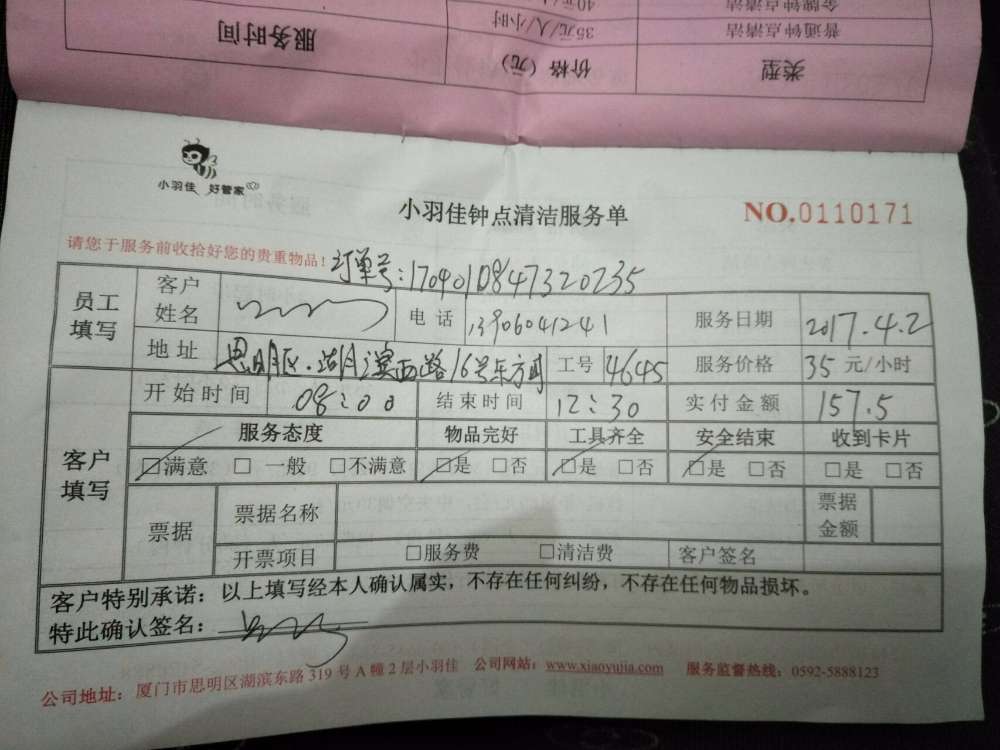 服务时间
价格（元）
类型
35元/人/小时
普通钟点清洁
40元/
金牌钟点清洁
小羽佳 好管家
小羽佳钟点清洁服务单
NO.0110171
请您于服务前收拾好您的贵重物品！
订单号：1704010847320235
员工填写
客户姓名
电话 13906041241
服务日期 2017.4.2
地址 思明区.湖滨西路16号东方
工号 4645
服务价格 35 元/小时
客户填写
开始时间 08:00
结束时间 12:30
实付金额 157.5
服务态度 物品完好 工具齐全 安全结束 收到卡片
□满意 □一般 □不满意 □是 □否 □是 □否 □是 □否 □是 □否
票据
票据名称
票据金额
开票项目 □服务费 □清洁费 客户签名
客户特别承诺：以上填写经本人确认属实，不存在任何纠纷，不存在任何物品损坏。
特此确认签名：
公司地址：厦门市思明区湖滨东路319号A幢2层小羽佳 公司网站：www.xiaoyujia.com 服务监督热线：0592-5888123